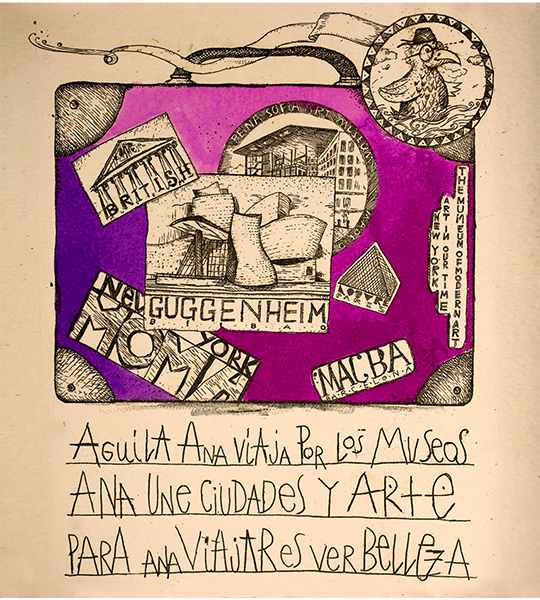 SOFIA ART
BRITISH
GUGGENHEIM
BILBAO
LOUVRE
PARIS
THE MUMEUN OF MODERN ART
ART IN OUR TIME
NEW YORK
NEW YORK
MOM
MACBA
BARCELONA
AGUILA ANA VIAJA POR LOS MUSEOS
ANA UNE CIUDADES Y ARTE
PARA ANA VIAJAR ES VER BELLEZA